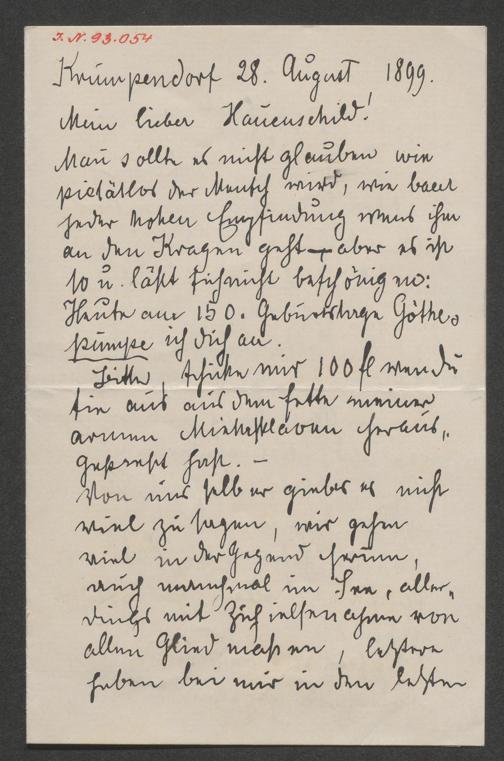 I.N. 93.054
Krumpendorf 28. August 1899.
Mein lieber Hauenschild!
Man sollte es nicht glauben wie
pietätlos der Mensch wird, wie baar
jeder hohen Empfindung wens ihm
an den Kragen geht – aber es ist
so u. läßt sich nicht beschönigen:
Heute am 150. Geburtstage Göthes
pumpe ich dich an.
Bitte, schicke mir 100 fl wen du
sie aus aus dem Fette meiner
armen Miethsklaven heraus,,
gepreßt hast. –
Von uns selber giebts es nicht
viel zu sagen, wir gehen
viel in der Gegend herum,
auch manchmal im See, aller,,
dings mit Zuhielfenahme von
allen Gliedmaßen, letztere
haben bei mir in den letzten